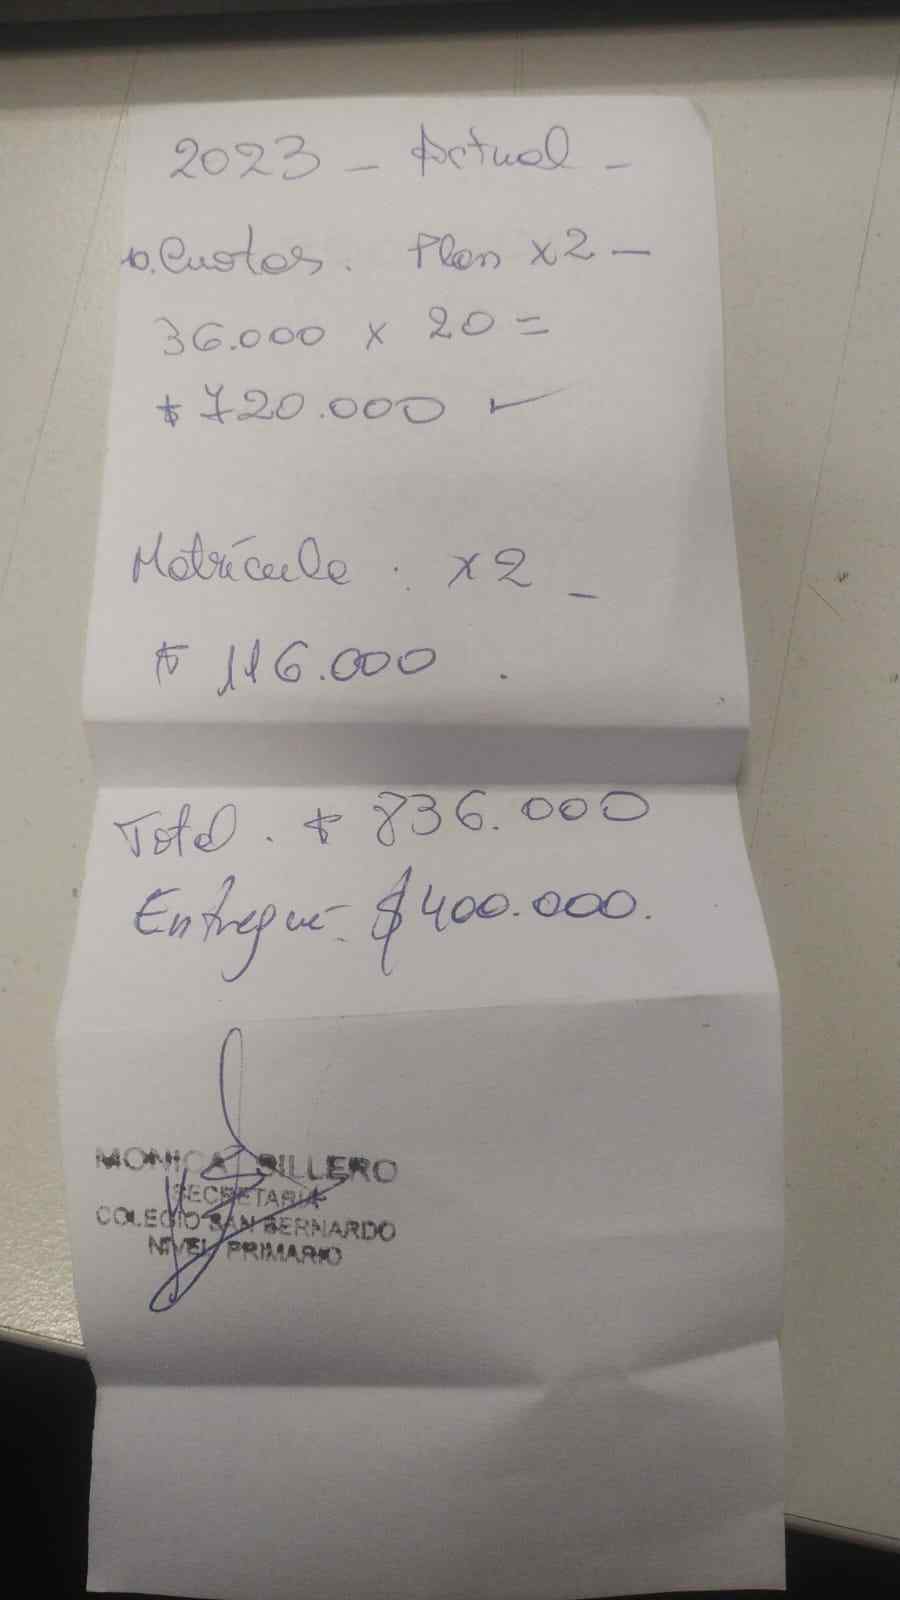 2023 - Actual -
10. Cuotas. Plan x2 -
36.000 x 20 =
$ 720.000 ✓
Matrícula . x2 -
$ 116.000 .
Total . $ 836.000
Entregué - $ 400.000.
MONICA SILLERO
SECRETARIA
COLEGIO SAN BERNARDO
NIVEL PRIMARIO